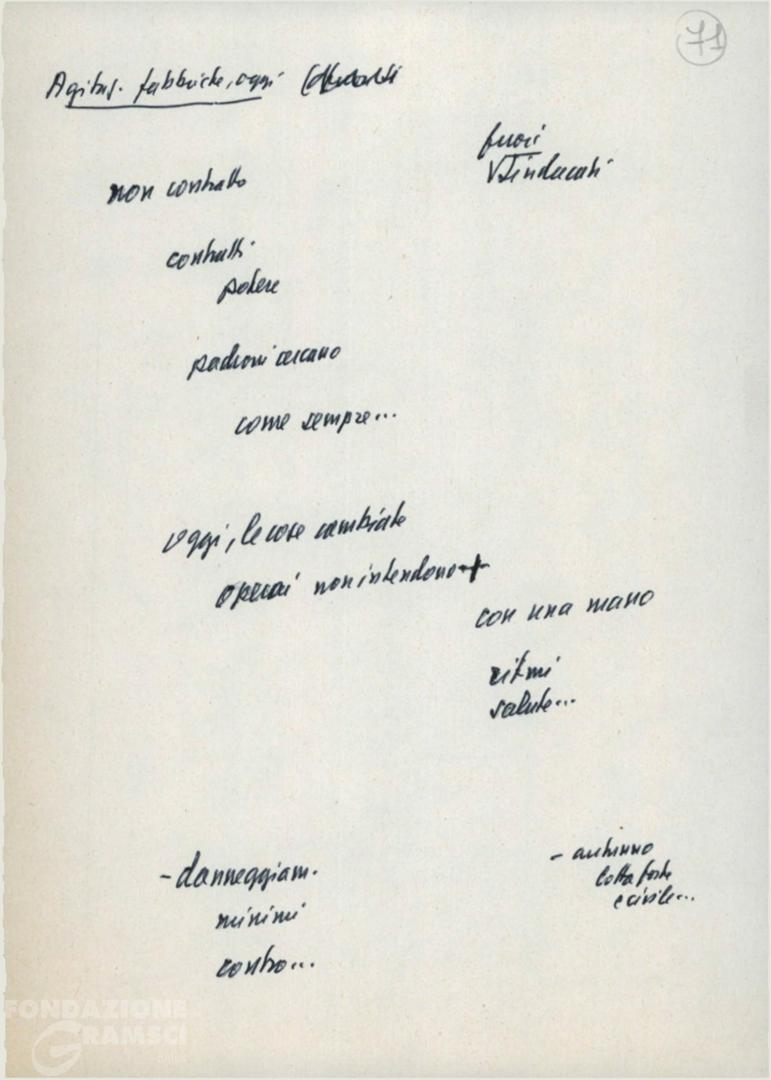 71
Agitaz. fabbriche, oggi
fuori
sindacati
non contratto
contratti
potere
padroni cercano
come sempre...
oggi, le cose cambiate
operai non intendono +
con una mano
ritmi
salute...
- danneggiam.
minimi
contro...
- autunno
lotta forte
e civile...
FONDAZIONE
GRAMSCI